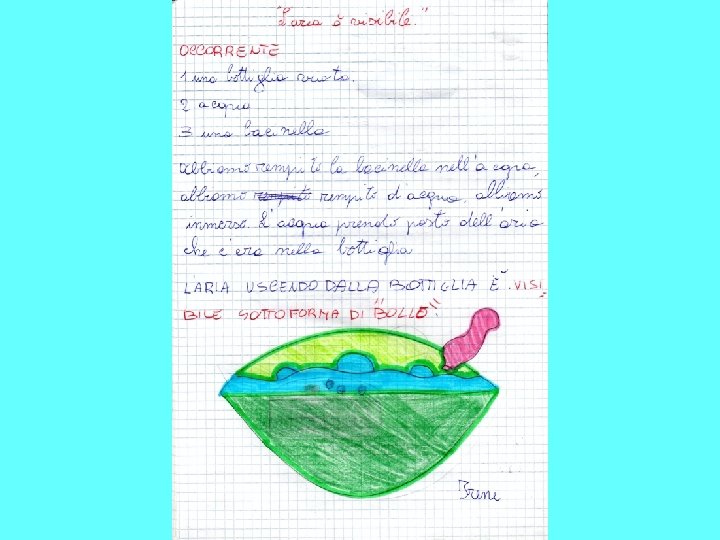 "L'aria è visibile."
OCCORRENTE
1 una bottiglia vuota.
2 acqua
3 una bacinella
abbiamo rempito la bacinella nell'acqua,
abbiamo rempito d'acqua, abbiamo
inmerso. L'acqua prendo posto dell'aria
che c'era nella bottiglia
L'ARIA USCENDO DALLA BOTTIGLIA È VISI
BILE SOTTOFORMA DI "BOLLE".
Irene